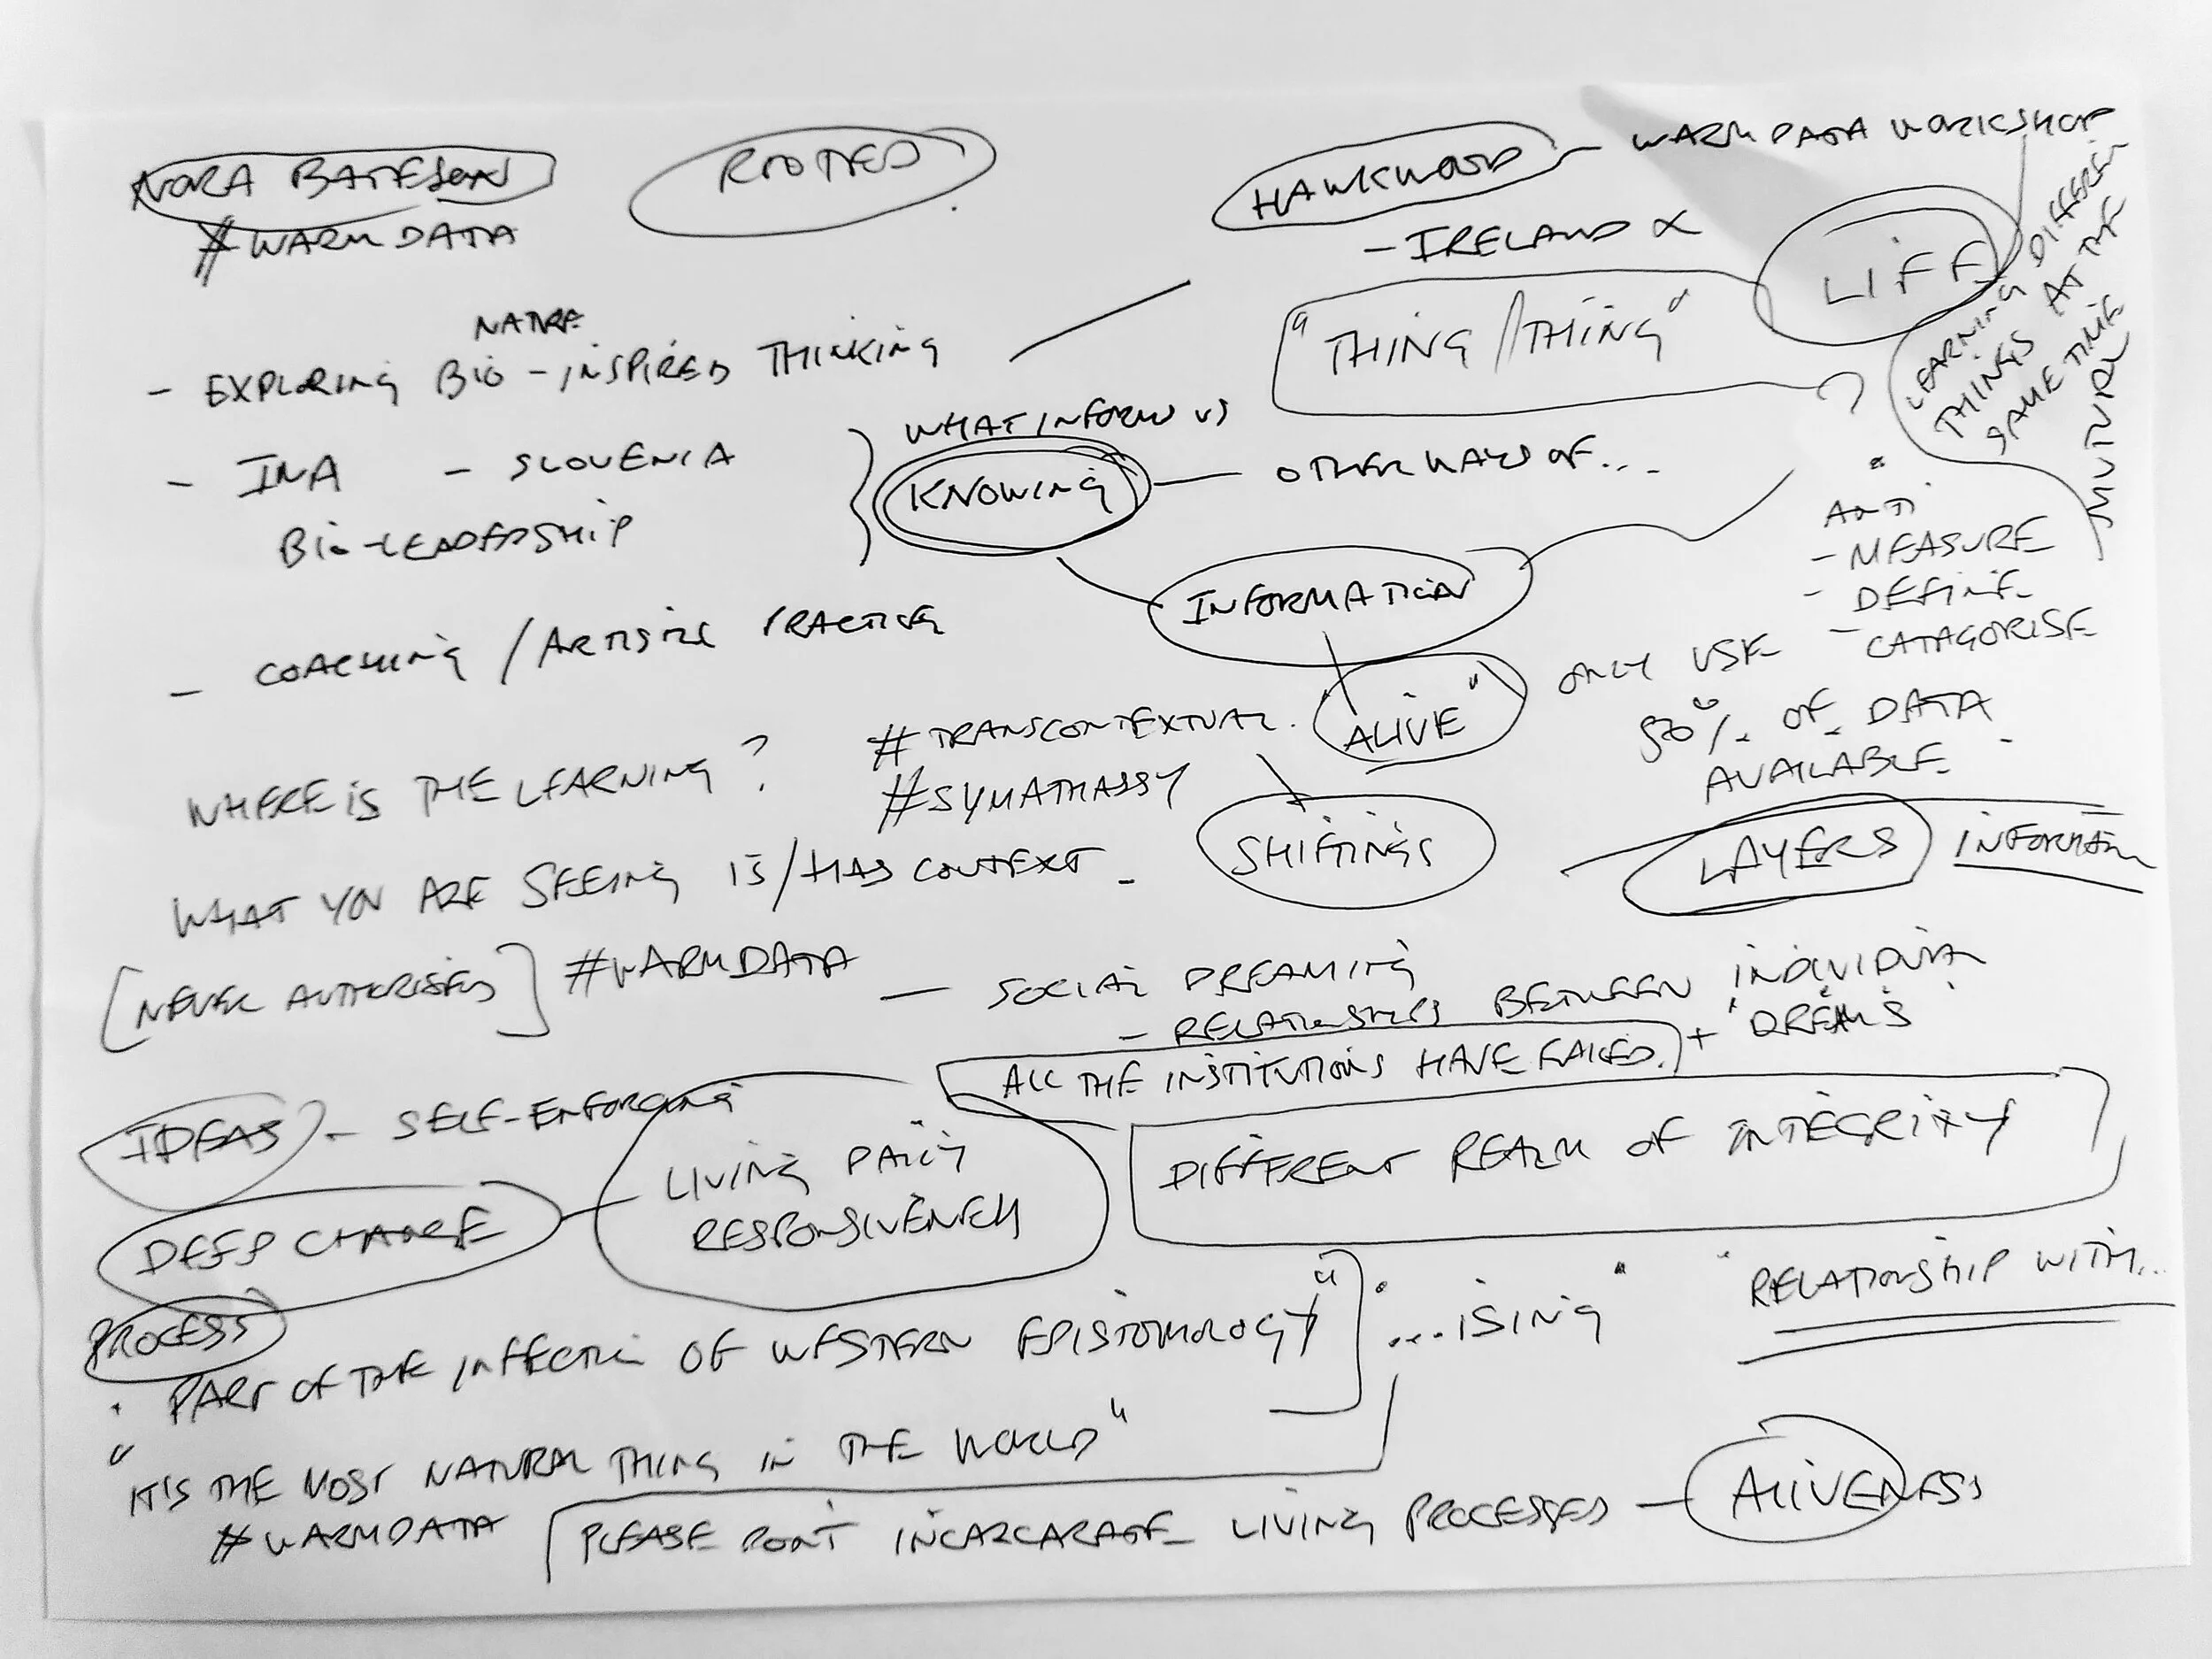 NORA BATESON
#WARMDATA
ROOTED
HAWKWOOD - WARM DATA WORKSHOP
- IRELAND
LIFE
LEARNING DIFFEREN
THINGS AT THE
SAME TIME
MUTUAL
"THING/THING"
NATURE
- EXPLORING BIO-INSPIRED THINKING
- INA - SLOVENIA
BIO-LEADERSHIP
WHAT INFORMS US
KNOWING - OTHER WAYS OF...
INFORMATION
ANTI
- MEASURE
- DEFINE
- CATAGORISE
- COACHING / ARTISTIC PRACTICE
"ALIVE"
ONLY USE
% OF DATA
AVAILABLE
WHERE IS THE LEARNING?
#TRANSCONTEXTUAL.
#SYMATHASSY
SHIFTINGS
LAYERS INFORMATION
WHAT YOU ARE SEEING IS/HAS CONTEXT -
[NEVER AUTHORISED] #WARMDATA - SOCIAL DREAMING
- RELATIONSHIPS BETWEEN INDIVIDUAL
+ 'DREAMS'
ALL THE INSTITUTIONS HAVE FAILED.
IDEAS - SELF-ENFORCING
DIFFERENT REALM OF INTEGRITY
DEEP CHANGE
LIVING DAILY
RESPONSIVENESS
PROCESS
. PART OF THE INFECTION OF WESTERN EPISTOMOLOGY"] "...ISING" "RELATIONSHIP WITH...
"IT'S THE MOST NATURAL THING IN THE WORLD"
#WARMDATA
PLEASE DON'T INCARCARATE LIVING PROCESSES - ALIVENESS